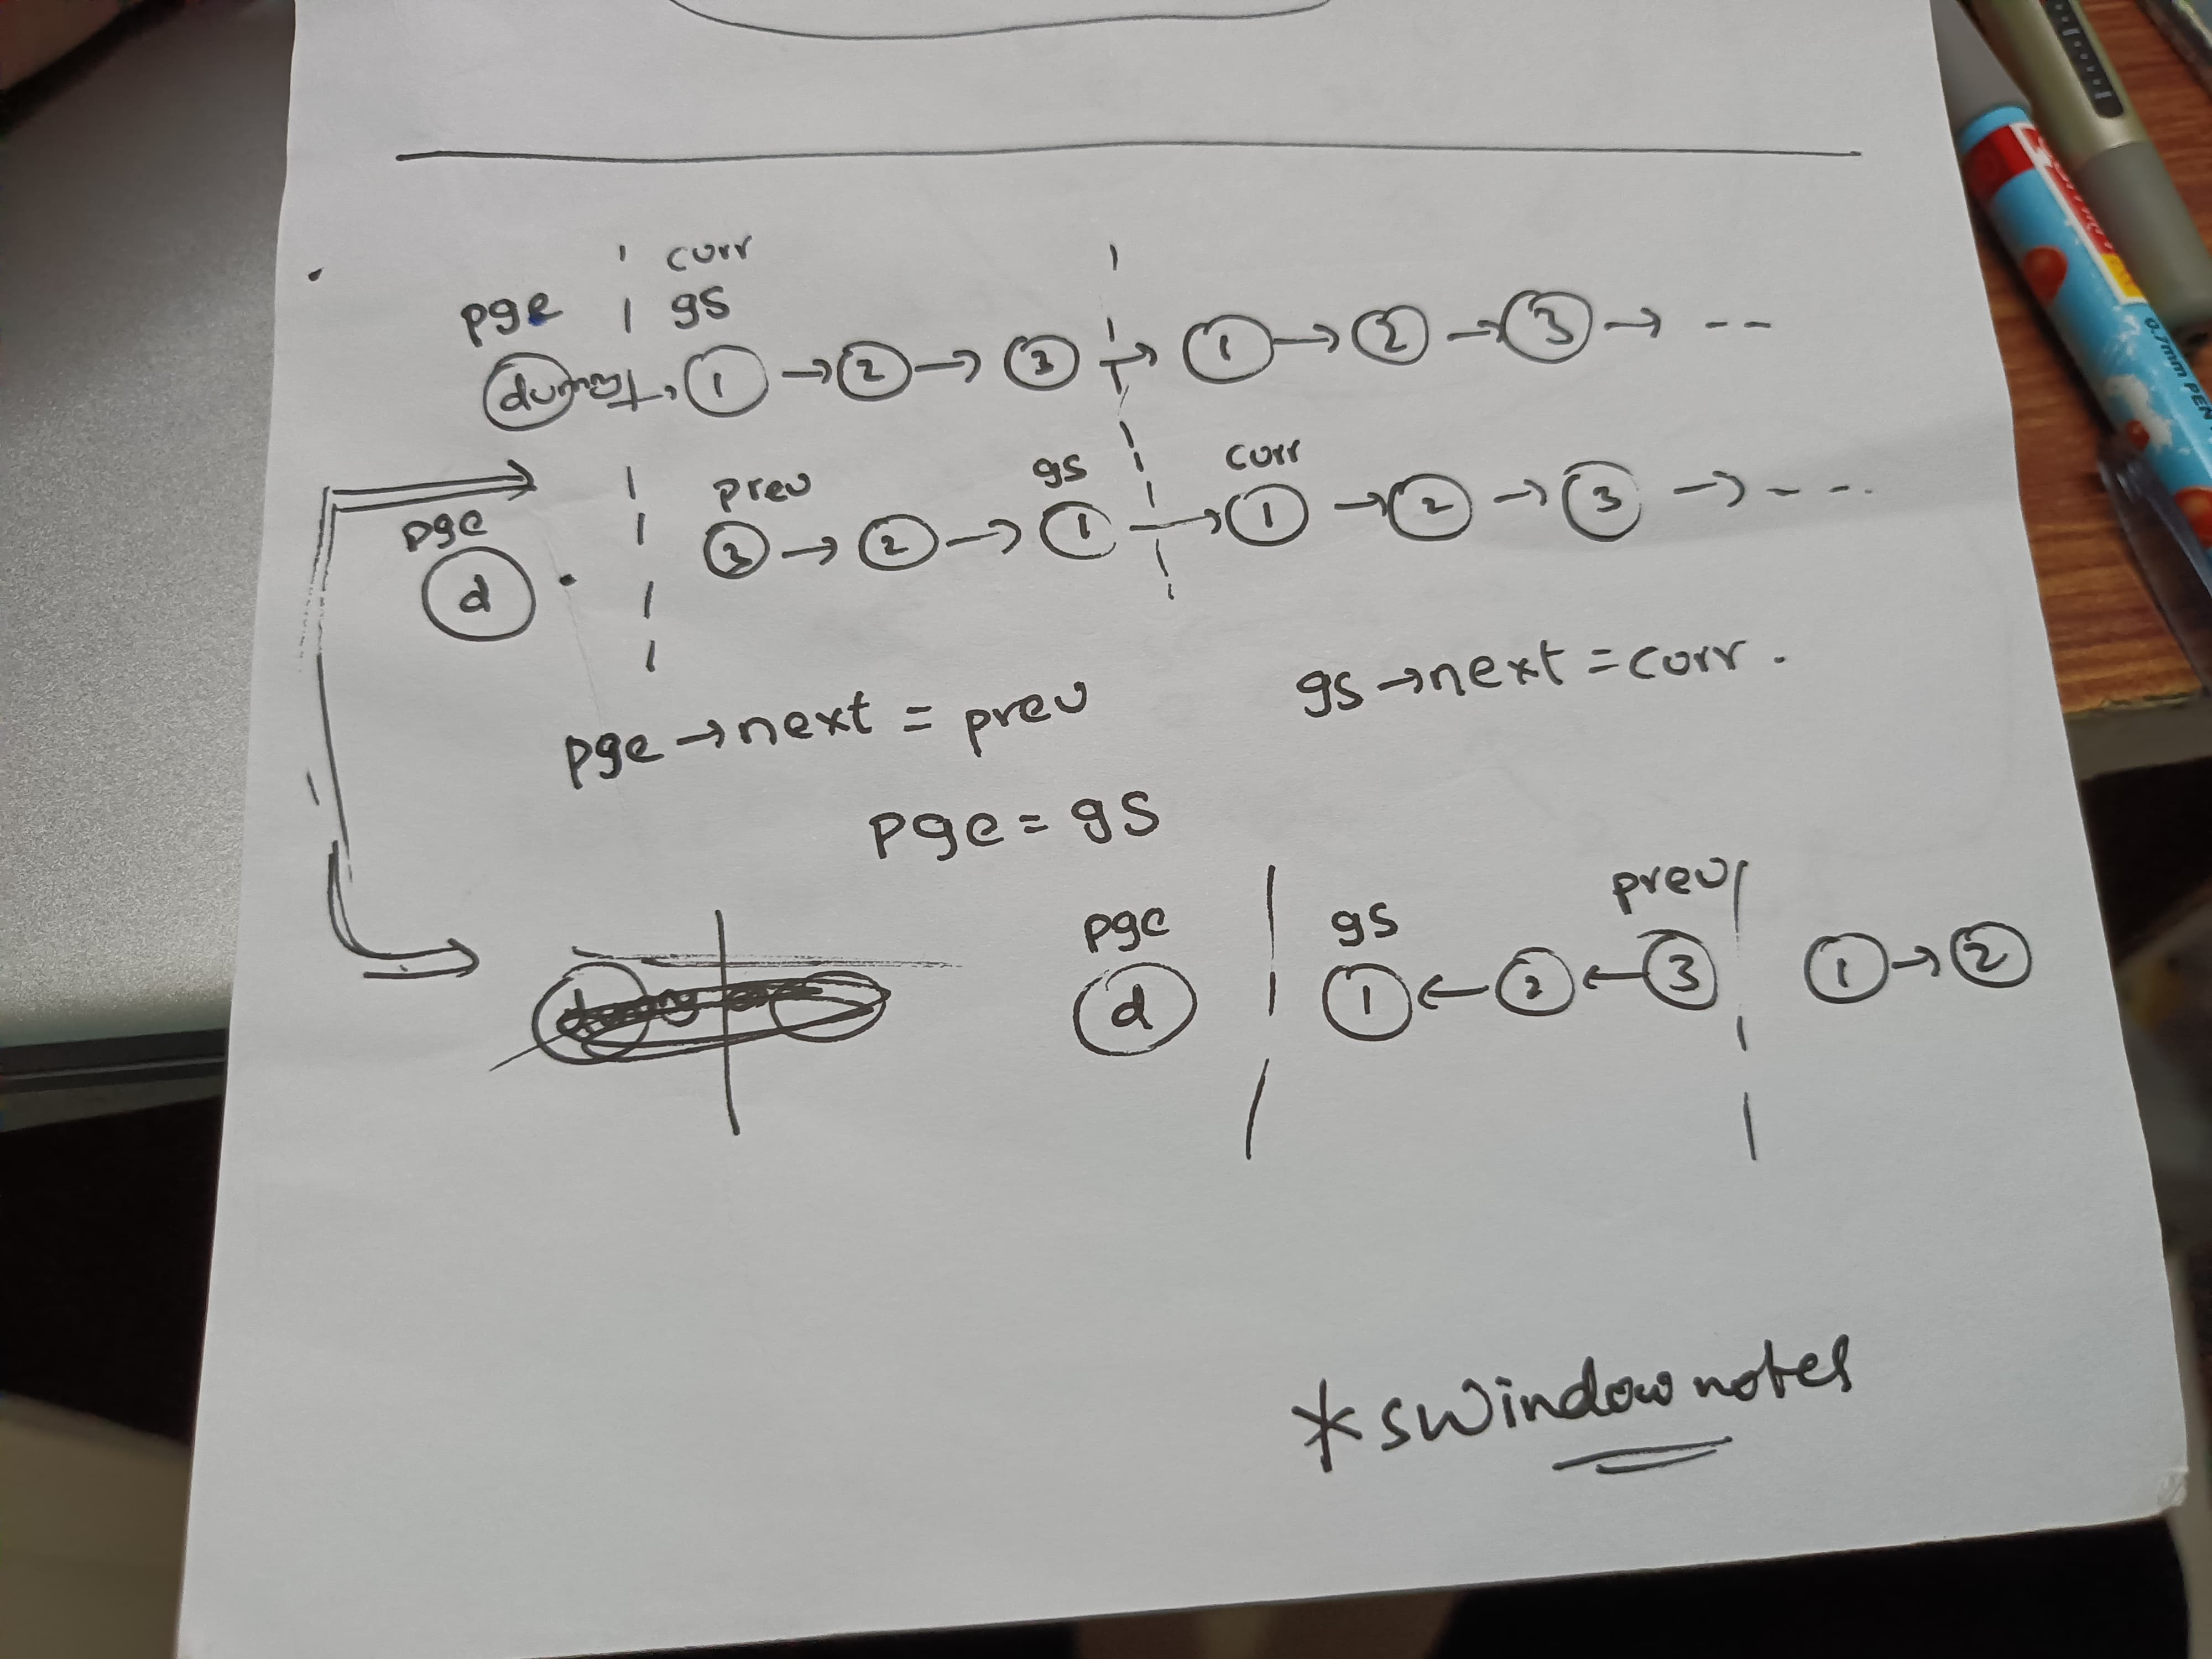 curr
pge gs
dummy → 1 → 2 → 3 → 1 → 2 → 3 → --
prev gs curr
pge
d 3 → 2 → 1 → 1 → 2 → 3 → ---
pge → next = prev gs → next = curr.
pge = gs
pge gs prev
d 1 ← 2 ← 3 1 → 2
* swindow notes
0.7mm PEN